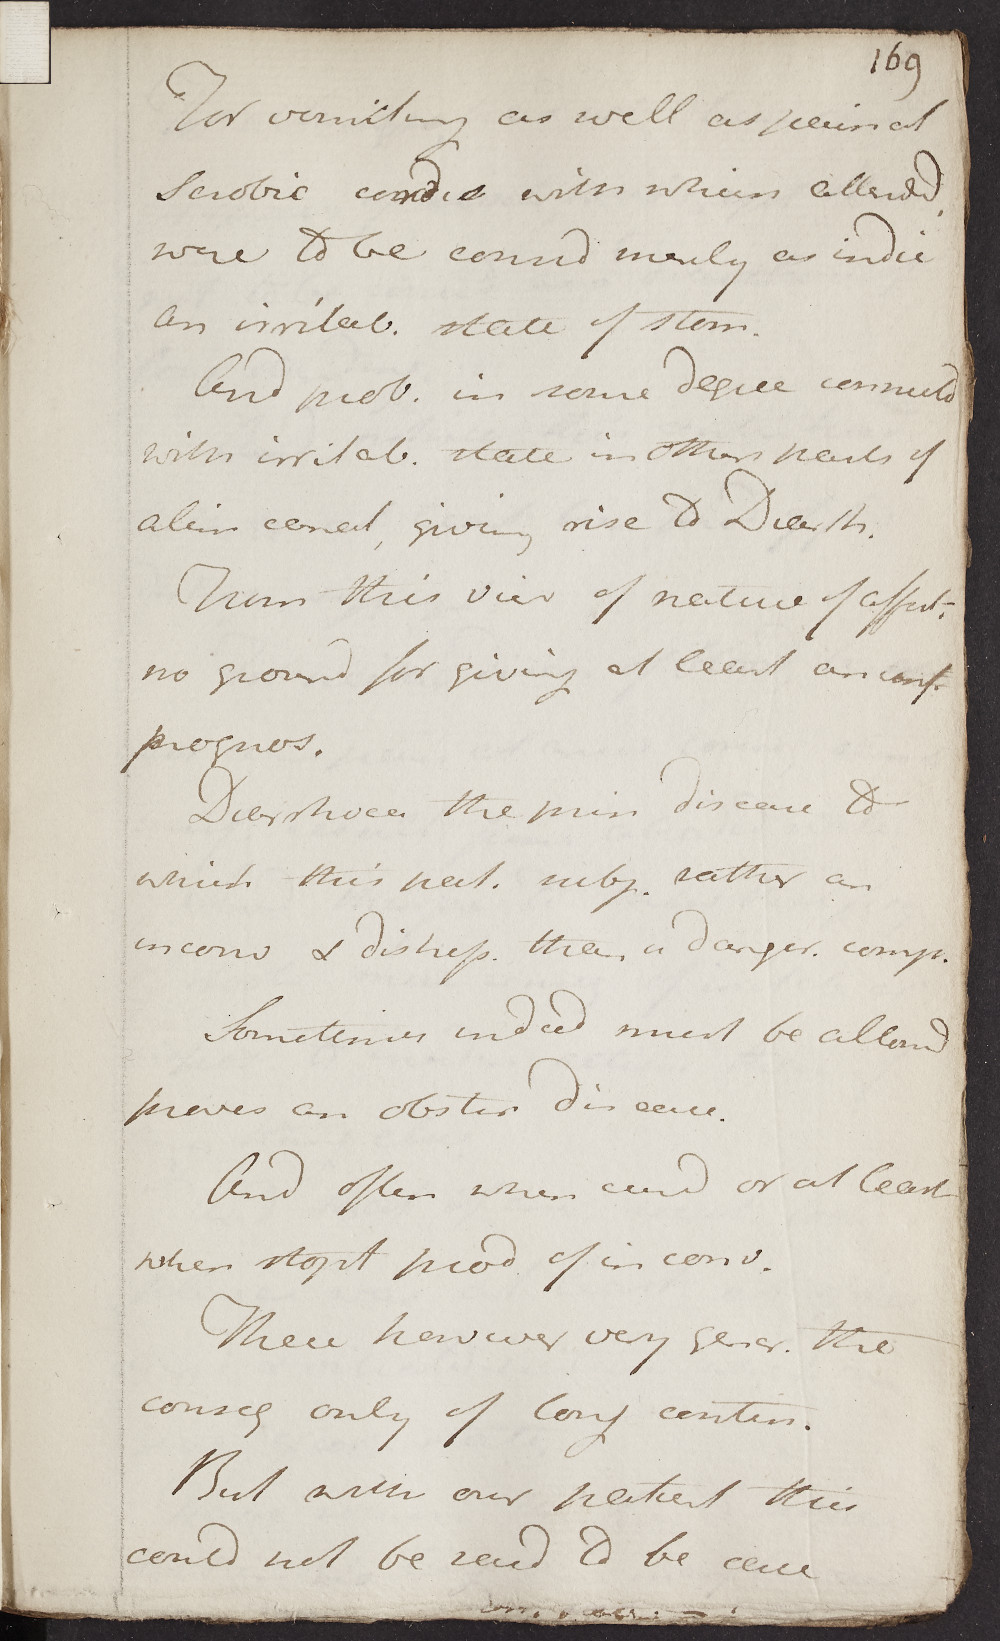 169
For vomiting as well as pain at
Scrobic cordis with which attendd,
were to be consd merely as indic
an irritab. state of stom.
And prob. in some degree connectd
with irritab. state in other parts of
alim canal, giving rise to Diarrh.
From this view of nature of affect.
no ground for giving at least an unf.
prognos.
Diarrhoea the prin disease to
which this pat. subj. rather an
inconv & distress. than a danger. comp.
Sometimes indeed must be allowd
proves an obstin disease.
And often when curd or at least
when stopt prod of inconv.
These however very gener. the
conseq only of long contin.
But with our patient this
could not be said to be case